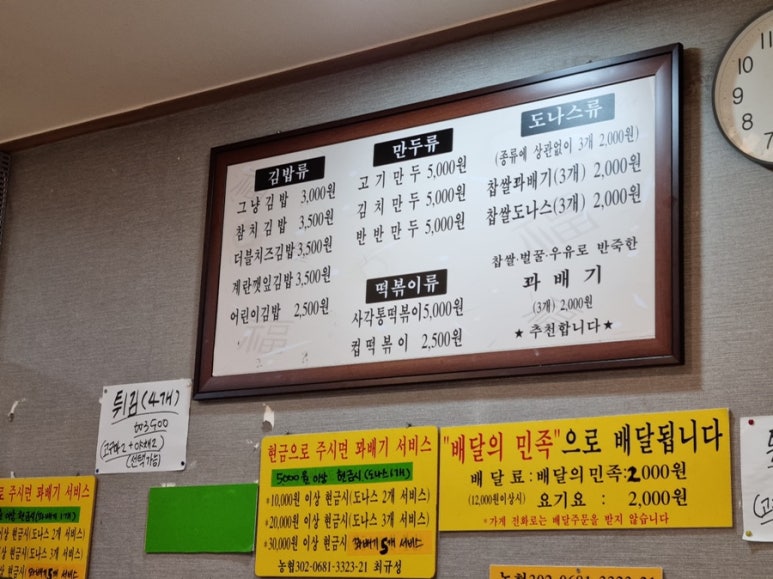 김밥류
그냥김밥 3,000원
참치김밥 3,500원
더블치즈김밥 3,500원
계란깻잎김밥 3,500원
어린이김밥 2,500원
만두류
고기만두 5,000원
김치만두 5,000원
반반만두 5,000원
떡볶이류
사각통떡볶이 5,000원
컵떡볶이 2,500원
도나스류
(종류에 상관없이 3개 2,000원)
찹쌀꽈배기(3개) 2,000원
찹쌀도나스(3개) 2,000원
찹쌀·벌꿀·우유로 반죽한
꽈배기
(3개) 2,000원
★추천합니다★
11
10
9
8
7
튀김(4개)
(선택가능)
로 주시면 꽈배기 서비스
이상 현금시(도나스 2개 서비스)
꽈배기 5개 서비스
현금으로 주시면 꽈배기 서비스
5000원 이상 현금시(도나스1개)
*10,000원 이상 현금시(도나스 2개 서비스)
*20,000원 이상 현금시(도나스 3개 서비스)
*30,000원 이상 현금시 꽈배기 5개 서비스
농협302-0681-3323-21 최규성
"배달의 민족"으로 배달됩니다
배달료:배달의민족:2,000원
(12,000원이상시) 요기요 : 2,000원
*가게 전화로는 배달주문을 받지 않습니다
농협302-0681-3323-21